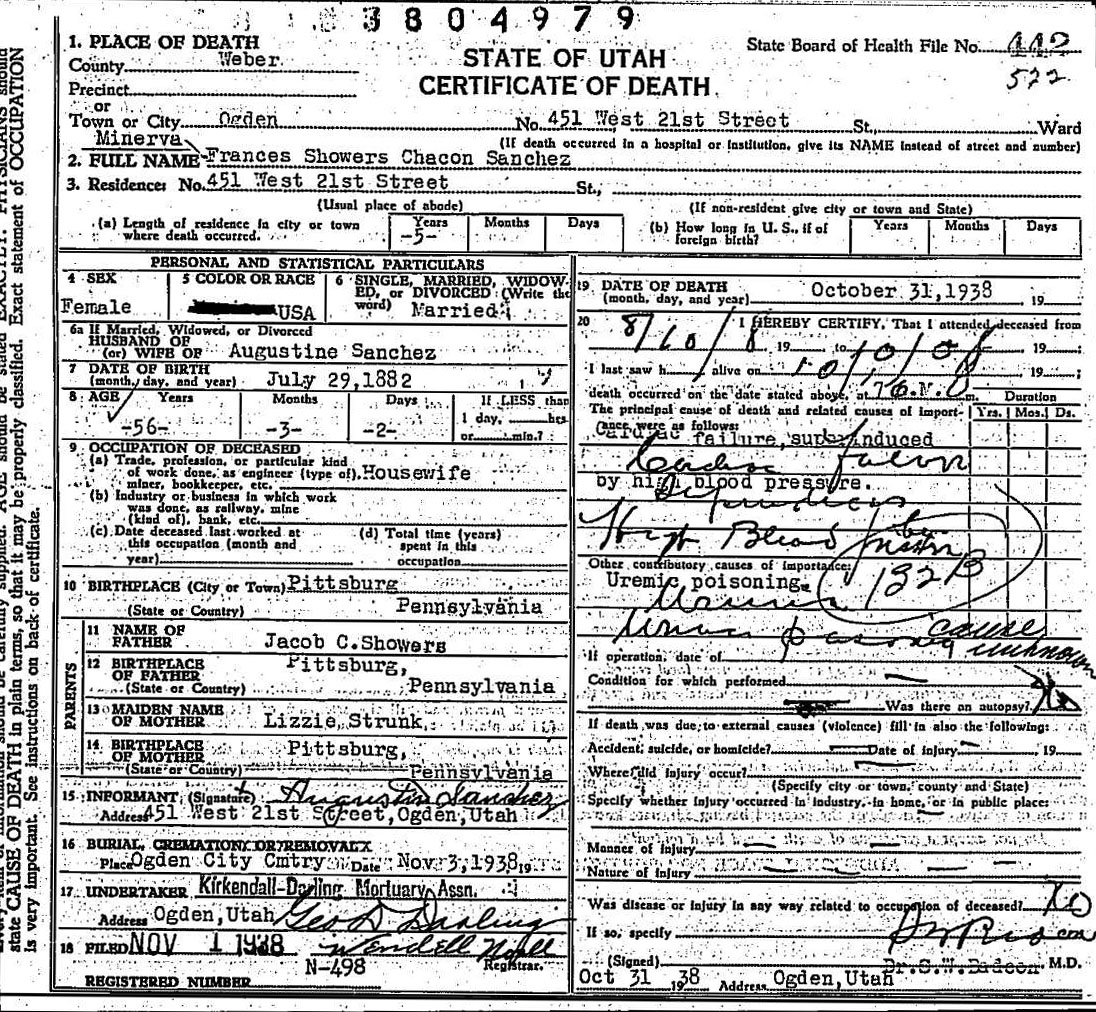 3804979
STATE OF UTAH
CERTIFICATE OF DEATH
State Board of Health File No. 442
522
1. PLACE OF DEATH
County Weber
Precinct
or
Town or City Ogden No. 451 West 21st Street St., Ward
(If death occurred in a hospital or institution, give its NAME instead of street and number)
Minerva
2. FULL NAME Frances Showers Chacon Sanchez
3. Residence: No. 451 West 21st Street St.,
(Usual place of abode) (If non-resident give city or town and State)
(a) Length of residence in city or town where death occurred. Years -5- Months Days
(b) How long in U. S., if of foreign birth? Years Months Days
PERSONAL AND STATISTICAL PARTICULARS
4 SEX
Female
5 COLOR OR RACE
USA
6 SINGLE, MARRIED, WIDOW-
ED, or DIVORCED (Write the
word) Married
6a If Married, Widowed, or Divorced
HUSBAND OF
(or) WIFE OF Augustine Sanchez
7 DATE OF BIRTH
(month, day, and year) July 29,1882
8 AGE Years Months Days If LESS than
1 day, hrs
-56- -3- -2- or min.?
9 OCCUPATION OF DECEASED
(a) Trade, profession, or particular kind
of work done, as engineer (type of), Housewife
miner, bookkeeper, etc.
(b) Industry or business in which work
was done, as railway, mine
(kind of), bank, etc.
(c) Date deceased last worked at
this occupation (month and
year)
(d) Total time (years)
spent in this
occupation
10 BIRTHPLACE (City or Town) Pittsburg
(State or Country) Pennsylvania
PARENTS
11 NAME OF
FATHER Jacob C.Showers
12 BIRTHPLACE
OF FATHER Pittsburg,
(State or Country) Pennsylvania
13 MAIDEN NAME
OF MOTHER Lizzie Strunk
14 BIRTHPLACE
OF MOTHER Pittsburg,
(State or Country) Pennsylvania
15 INFORMANT (Signature) Augustin Sanchez
Address 451 West 21st Street,Ogden,Utah
16 BURIAL, CREMATION OR REMOVAL
Place Ogden City Cmtry Date Nov 3,1938 19
17 UNDERTAKER Kirkendall-Darling Mortuary Assn.
Address Ogden,Utah Geo D Darling
18 FILED NOV 1 1938 Wendell Noall
Registrar.
N-498
REGISTERED NUMBER
19 DATE OF DEATH
(month, day, and year) October 31,1938 19
20 I HEREBY CERTIFY, That I attended deceased from
19 to 19 ;
I last saw h alive on 19 ;
death occurred on the date stated above, at m.
The principal cause of death and related causes of import-
ance were as follows:
Duration
Yrs. Mos. Ds.
Cardiac failure, super induced
by high blood pressure.
High Blood
132 B
Other contributory causes of importance:
Uremic poisoning.
cause
unknown
If operation, date of
Condition for which performed
Was there an autopsy? No
If death was due to external causes (violence) fill in also the following:
Accident, suicide, or homicide? Date of injury 19
Where did injury occur?
(Specify city or town, county and State)
Specify whether injury occurred in industry, in home, or in public place:
Manner of injury
Nature of injury
Was disease or injury in any way related to occupation of deceased? No
If so, specify
(Signed) M.D.
Oct 31 1938 Address Ogden,Utah
state CAUSE OF DEATH in plain terms, so that it may be properly classified. Exact statement of OCCUPATION
is very important. See instructions on back of certificate.